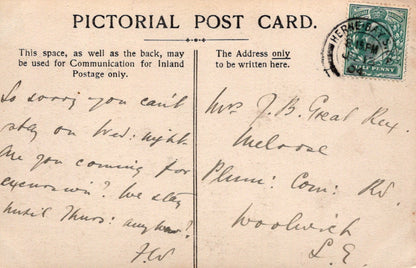 PICTORIAL POST CARD.
This space, as well as the back, may
be used for Communication for Inland
Postage only.
The Address only
to be written here.
HERNE BAY
PM
HALFPENNY
So sorry you can't
stay on Wed: night.
Are you coming for
excursion? We stay
until Thurs: anyhow!
Mrs J. B. Great Rex.
Melrose
Plum: Com: Rd.
Woolwich
S. E.